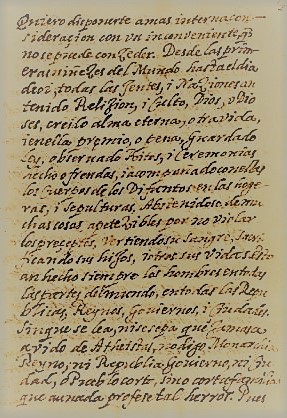 Quiero disponerte a mas interna con-
sideracion con vn inconveniente, q̃
no se puede conzeder. Desde las prim-
eras niñezes del Mundo hasta el dia
de oi, todas las Gentes, i Naziones an
tenido Relijion, i Culto, Dios, v Dio
ses, creido alma eterna, otra vida,
i en ella premio, o pena, guardado
Leies, observado Ritos, i Ceremonias
hecho ofrendas, i acompañado con ellas
los Cuerpos de los Difuntos en las hogue-
ras, i Sepulturas. Absteniendose de mu-
chas cosas apetezibles por no violar
los preceptos, Vertiendo su Sangre, Sacri-
ficando sus hijos, i otros sus vidas. Esto
an hecho siempre los hombres en todas
las partes del mundo, en todas las Repu-
blicas, Reynos, Goviernos, i Ciudades.
Sin que se lea, ni se sepa que jamas a
avido de Atheistas, no digo Monarchia
Reyno, ni Republica, Govierno, ni Ciu-
dad, o Pueblo corto, sino corta familia
que aunada profese tal herror. Pues